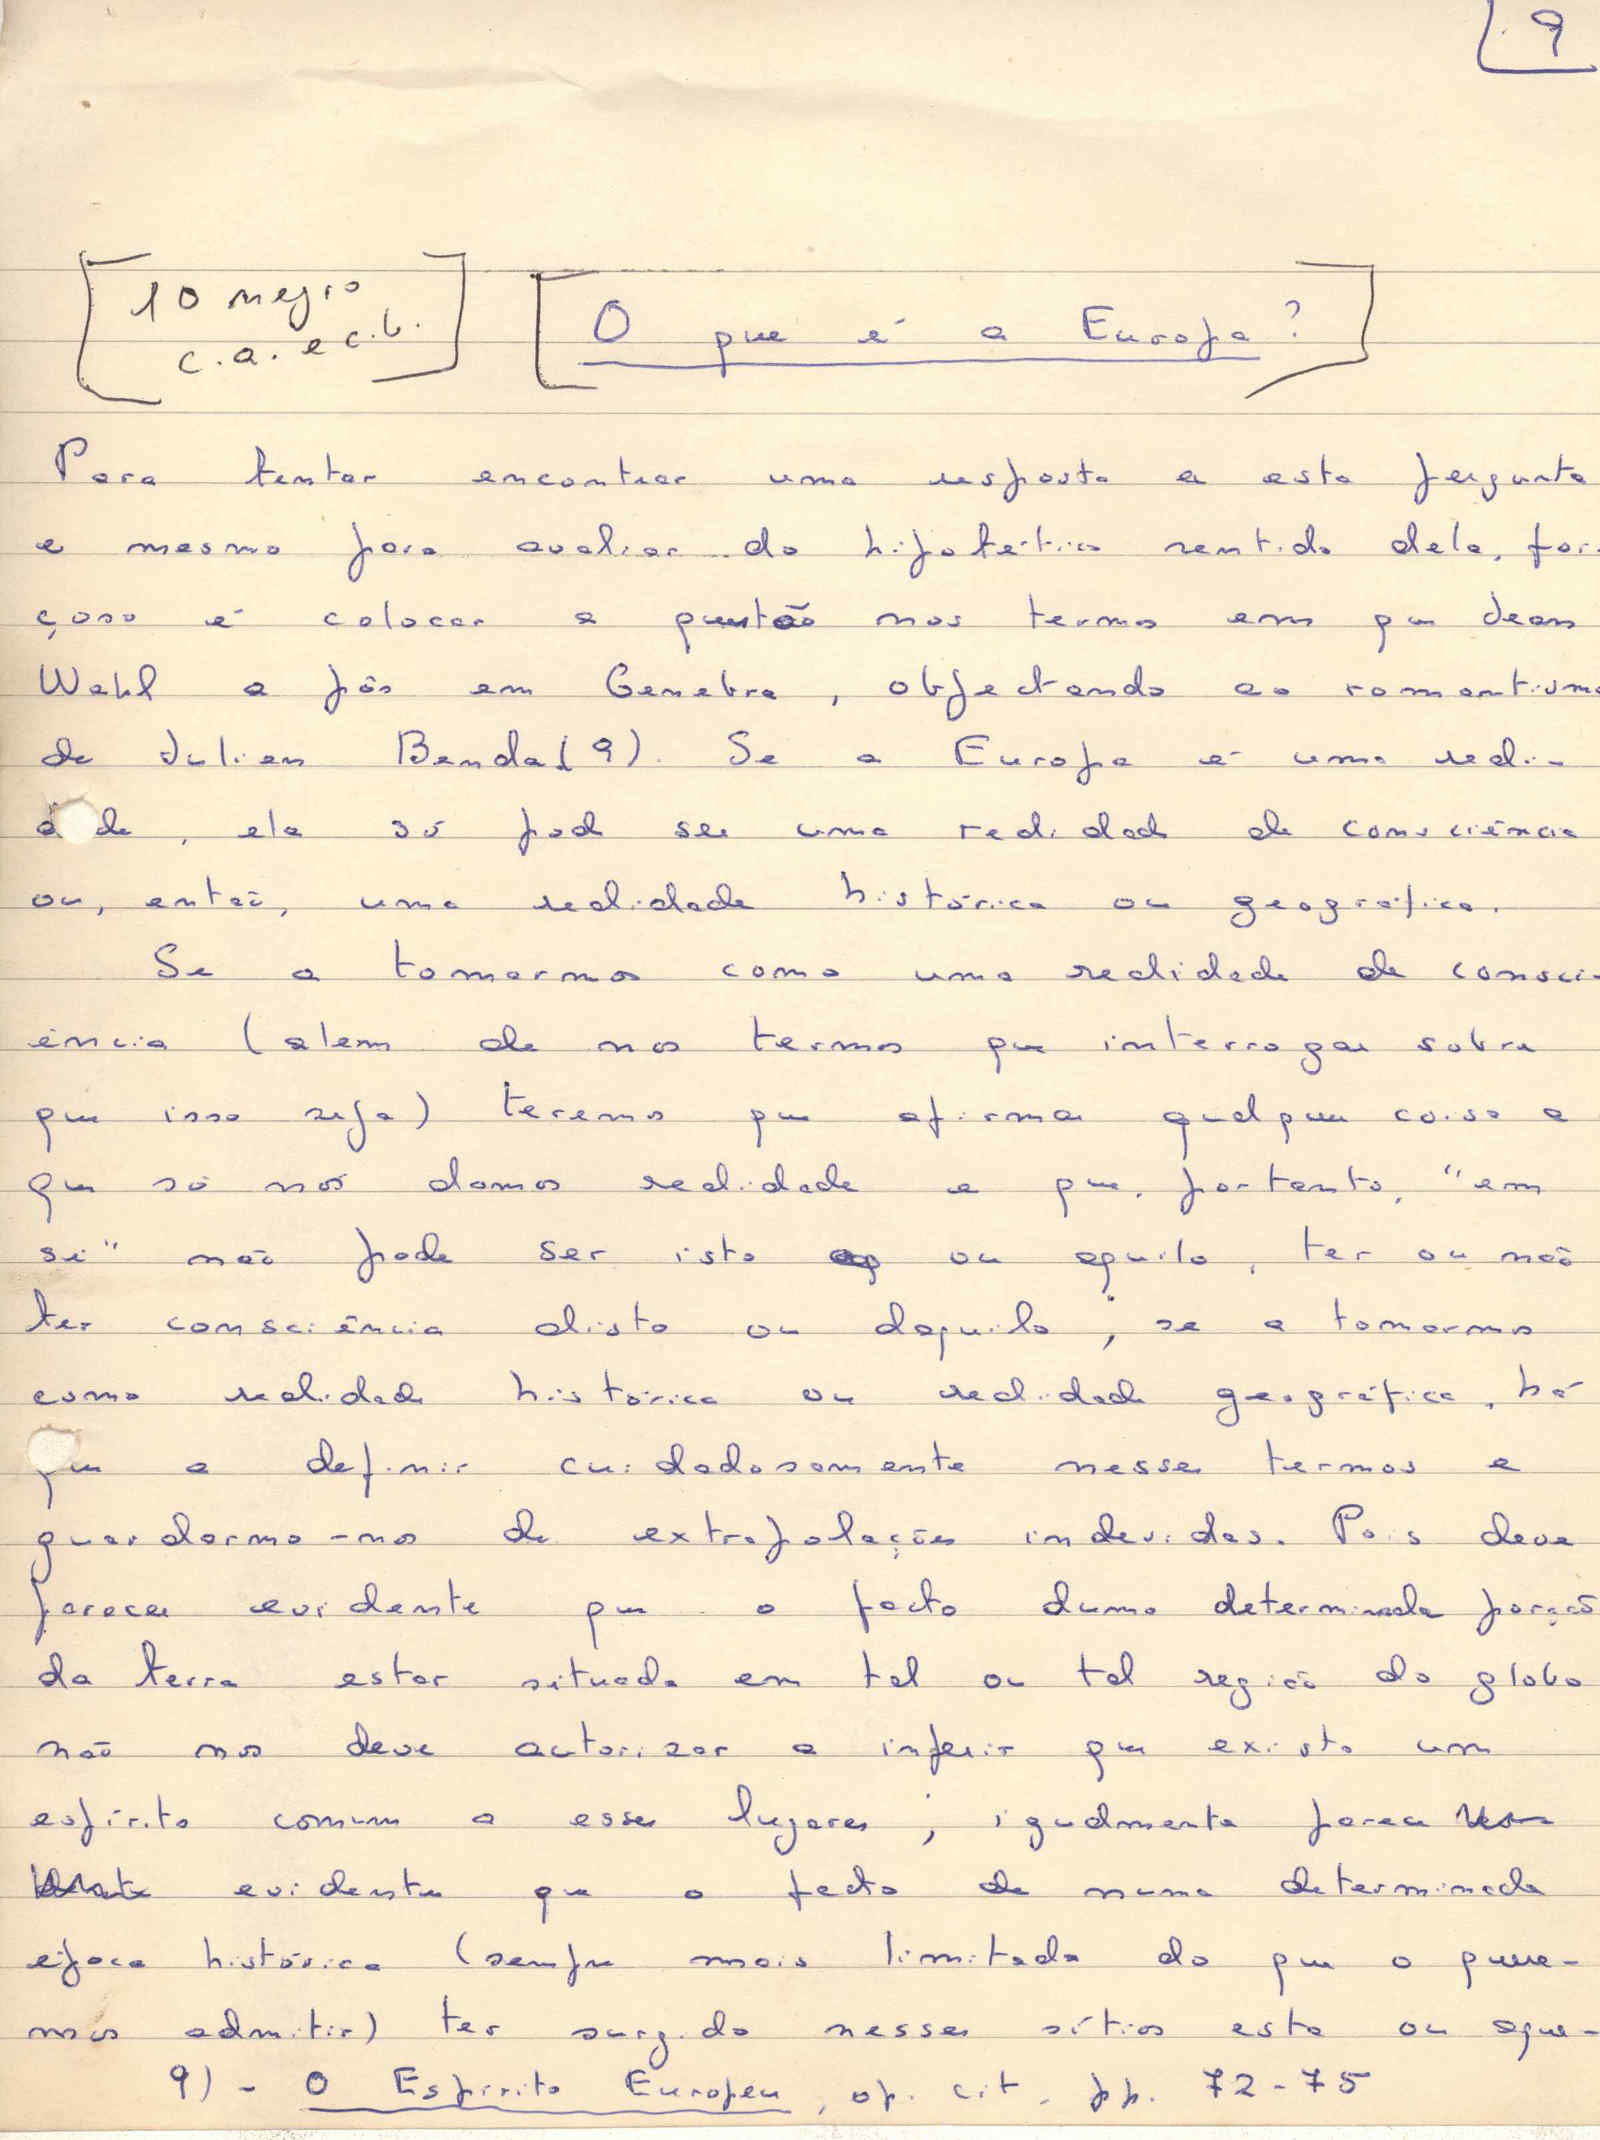 9
10 negro
c.a. e c.b.
O que é a Europa?
Para tentar encontrar uma resposta a esta pergunta
e mesmo para avaliar do hipotético sentido dela, for-
çoso é colocar a questão nos termos em que Jean
Wahl a pôs em Genebra, objectando ao romantismo
de Julien Benda (9). Se a Europa é uma reali-
dade, ela só pode ser uma realidade de consciência
ou, então, uma realidade histórica ou geográfica.
Se a tomarmos como uma realidade de consci-
ência (alem de nos termos que interrogar sobre
que isso seja) teremos que afirmar qualquer coisa a
que só nós damos realidade e que, portanto, "em
si" não pode ser isto ou aquilo, ter ou não
ter consciência disto ou daquilo; se a tomarmos
como realidade histórica ou realidade geográfica, há
que a definir cuidadosamente nesses termos e
guardarmo-nos de extrapolações indevidas. Pois deve
parecer evidente que o facto duma determinada porção
da terra estar situada em tal ou tal região do globo
não nos deve autorizar a inferir que exista um
espírito comum a esses lugares; igualmente parece
evidente que o facto de numa determinada
época histórica (sempre mais limitada do que o quere-
mos admitir) ter surgido nesses sítios esta ou aque-
9) - O Espírito Europeu, op. cit., pp. 72-75